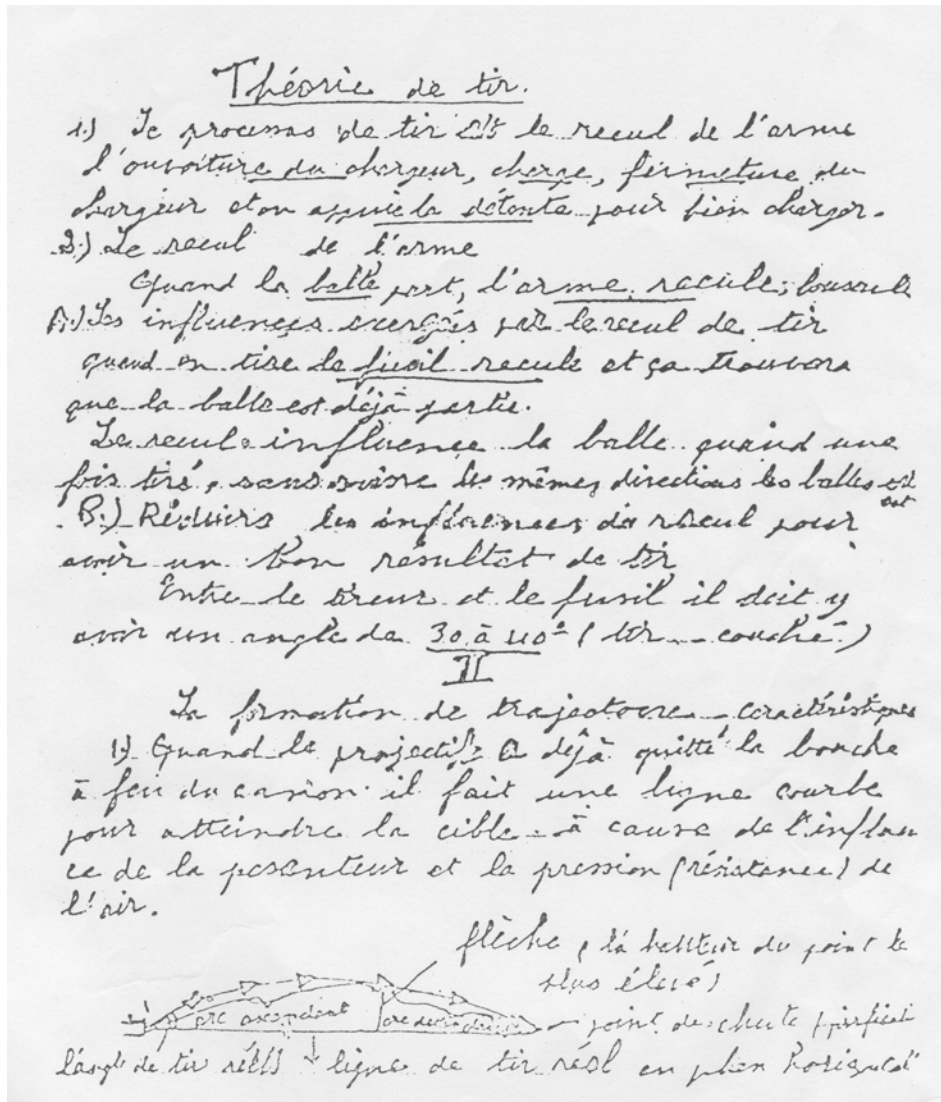 Théorie de tir.
1.) Le processus de tir est le recul de l'arme
l'ouvoiture du chargeur, charge, fermeture du
chargeur et on appuie la détente pour bien charger.
2.) Le recul de l'arme
Quand la balle part, l'arme recule, bouscule
A.) Les influences exergés par le recul de tir
quand on tire le fusil recule et ça trouvera
que la balle est déjà partie.
Le recul influence la balle quand une
fois tiré, sans suivre les mêmes directions les balles
B.) Réduire les influences du recul pour
avoir un bon résultat de tir
Entre le tireur et le fusil il doit y
avoir un angle de 30 à 40° (tir couché)
II
La formation de trajectoire caractéristiques
1.) Quand le projectile a déjà quitté la bouche
à feu du canon il fait une ligne courbe
pour atteindre la cible à cause de l'influen
ce de la pesenteur et la pression (résistance) de
l'air.
flèche, la hauteur du point le
plus élevé)
arc ascendant arc descendant point de chute
l'angle de tir réel ligne de tir réel en plan horizontal